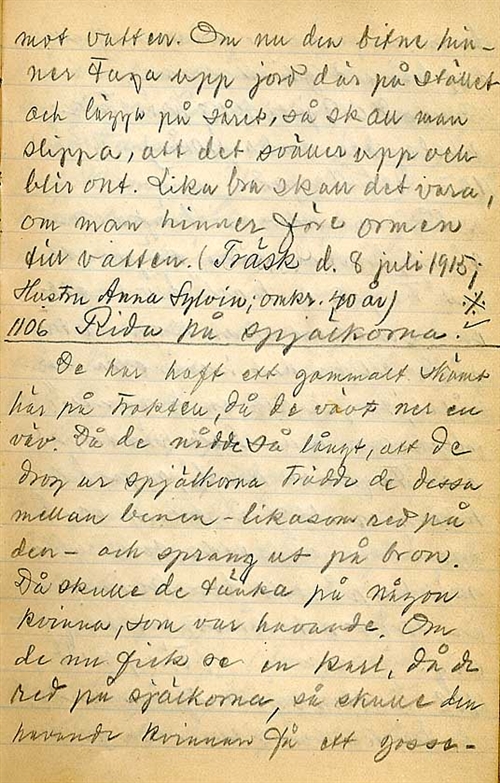 mot vatten. Om nu den bitne hin-
ner taga upp jord där på stället
och lägga på såret, så skall man
slippa, att det sväller upp och
blir ont. Lika bra skall det vara,
om man hinner före ormen
till vatten. (Träsk d. 8 juli 1915;
Hustru Anna Sylvin; omkr. 70 år)
1106 Rida på spjälkorna.
De har haft ett gammalt skämt
här på trakten, då de vävt ner en
väv. Då de nådde så långt, att de
drog ur spjälkorna trädde de dessa
mellan benen - likasom red på
den - och sprang ut på bron.
Då skulle de tänka på någon
kvinna, som var havande. Om
de nu fick se en karl, då de
red på själkorna, så skulle den
havande kvinnan få ett gosse-